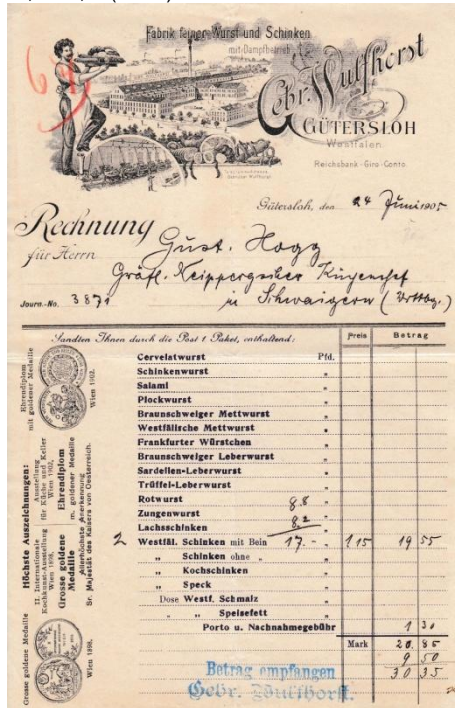 Fabrik feiner Wurst und Schinken
mit Dampfbetrieb
Gebr. Wulfhorst
GÜTERSLOH
Westfalen
Reichsbank-Giro-Conto
Gütersloh, den 24 Juni 1905
Rechnung
für Herrn Gust. Hogg
Gräfl. Neippergscher Küchenchef
Journ.-No. 3871 in Schwaigern (Wrttbg.)
Sandten Ihnen durch die Post 1 Paket, enthaltend: Preis Betrag
Cervelatwurst Pfd.
Schinkenwurst "
Salami "
Plockwurst "
Braunschweiger Mettwurst "
Westfälische Mettwurst "
Frankfurter Würstchen "
Braunschweiger Leberwurst "
Sardellen-Leberwurst "
Trüffel-Leberwurst "
Rotwurst 8,8 "
Zungenwurst "
Lachsschinken 8,2 "
2 Westfäl. Schinken mit Bein 17.- " 1 15 19 55
" Schinken ohne "
" Kochschinken "
" Speck "
Dose Westf. Schmalz "
" " Speisefett "
Porto u. Nachnahmegebühr 1 30
Mark 20.85
9 50
30 35
Betrag empfangen
Gebr. Wulfhorst.
Höchste Auszeichnungen:
II. Internationale Kochkunst-Ausstellung Wien 1898,
Grosse goldene Medaille
Ausstellung für Küche und Keller Wien 1902,
Ehrendiplom
m. goldener Medaille
Allerhöchste Anerkennung
Sr. Majestät des Kaisers von Oesterreich.
Ehrendiplom
mit goldener Medaille
Wien 1902.
Grosse goldene Medaille
Wien 1898.